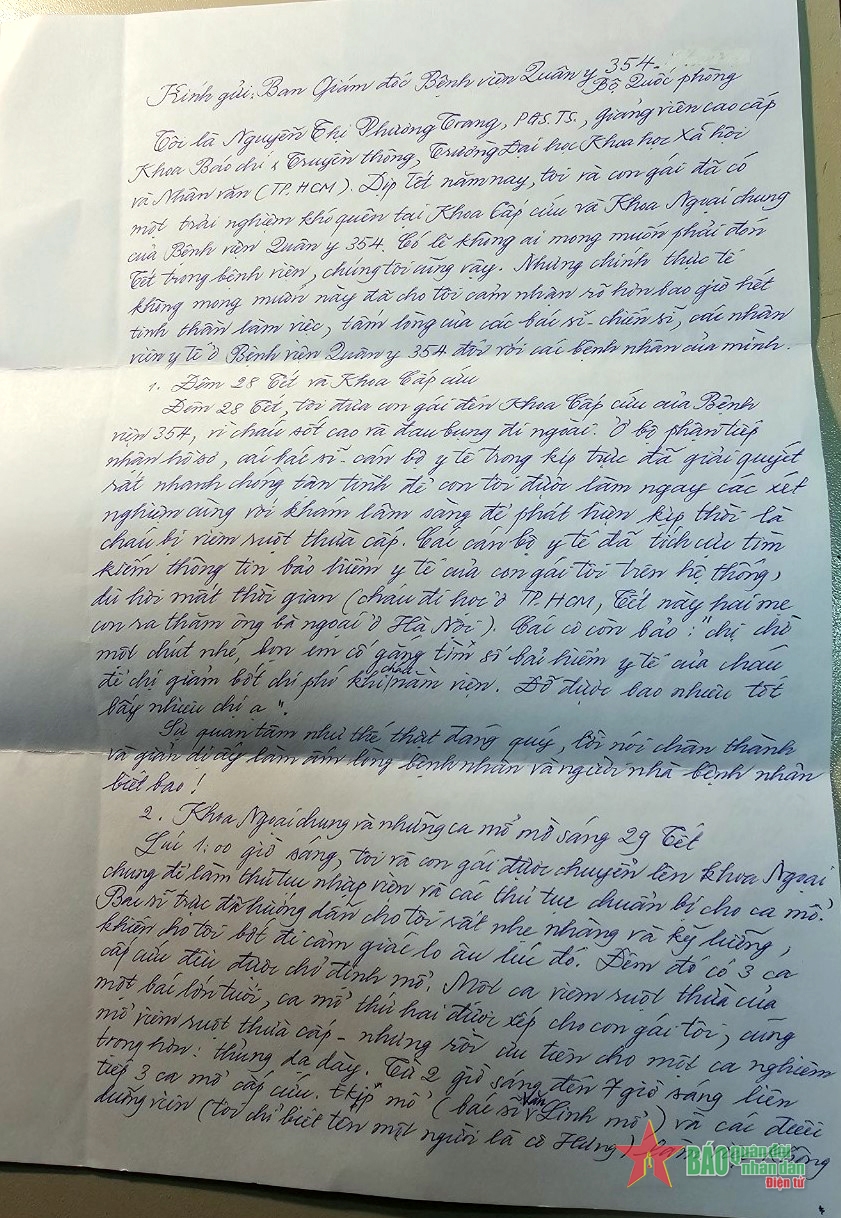 Kính gửi: Ban Giám đốc Bệnh viện Quân y 354.
Bộ Quốc phòng
Tôi là Nguyễn Thị Phương Trang, PGS.TS., giảng viên cao cấp
Khoa Báo chí & Truyền thông, Trường Đại học Khoa học Xã hội
và Nhân văn (TP.HCM). Dịp Tết năm nay, tôi và con gái đã có
một trải nghiệm khó quên tại Khoa Cấp cứu và Khoa Ngoại chung
của Bệnh viện Quân y 354. Có lẽ không ai mong muốn phải đón
Tết trong bệnh viện, chúng tôi cũng vậy. Nhưng chính thực tế
không mong muốn này đã cho tôi cảm nhận rõ hơn bao giờ hết
tinh thần làm việc, tấm lòng của các bác sĩ - chiến sĩ, các nhân
viên y tế ở Bệnh viện Quân y 354 đối với các bệnh nhân của mình.
1. Đêm 28 Tết và Khoa Cấp cứu
Đêm 28 Tết, tôi đưa con gái đến Khoa Cấp cứu của Bệnh
viện 354, vì cháu sốt cao và đau bụng đi ngoài. Ở bộ phận tiếp
nhận hồ sơ, các bác sĩ - cán bộ y tế trong kíp trực đã giải quyết
rất nhanh chóng tận tình để con tôi được làm ngay các xét
nghiệm cùng với khám lâm sàng để phát hiện kịp thời là
cháu bị viêm ruột thừa cấp. Các cán bộ y tế đã tích cực tìm
kiếm thông tin bảo hiểm y tế của con gái tôi trên hệ thống,
dù hơi mất thời gian (cháu đi học ở TP.HCM, Tết này hai mẹ
con ra thăm ông bà ngoại ở Hà Nội). Các cô còn bảo: "chị chờ
một chút nhé, bọn em cố gắng tìm số bảo hiểm y tế của cháu
để chị giảm bớt chi phí khi cháu nằm viện. Đỡ được bao nhiêu tốt
bấy nhiêu chị ạ".
Sự quan tâm như thế thật đáng quý, lời nói chân thành
và giản dị ấy làm ấm lòng bệnh nhân và người nhà bệnh nhân
biết bao!
2. Khoa Ngoại chung và những ca mổ mờ sáng 29 Tết
Lúc 1:00 giờ sáng, tôi và con gái được chuyển lên khoa Ngoại
chung để làm thủ tục nhập viện và các thủ tục chuẩn bị cho ca mổ.
Bác sĩ trực đã hướng dẫn cho tôi rất nhẹ nhàng và kỹ lưỡng,
khiến cho tôi bớt đi cảm giác lo âu lúc đó. Đêm đó có 3 ca
cấp cứu đều được chỉ định mổ. Một ca viêm ruột thừa của
một bác lớn tuổi, ca mổ thứ hai được xếp cho con gái tôi, cũng
mổ viêm ruột thừa cấp - nhưng rồi ưu tiên cho một ca nghiêm
trọng hơn: thủng dạ dày. Từ 2 giờ sáng đến 7 giờ sáng liên
tiếp 3 ca mổ cấp cứu. Ekip mổ (bác sĩ Văn Linh mổ) và các điều
dưỡng viên (tôi chỉ biết tên một người là cô Hưng)
BÁO quân đội nhân dân
Điện tử